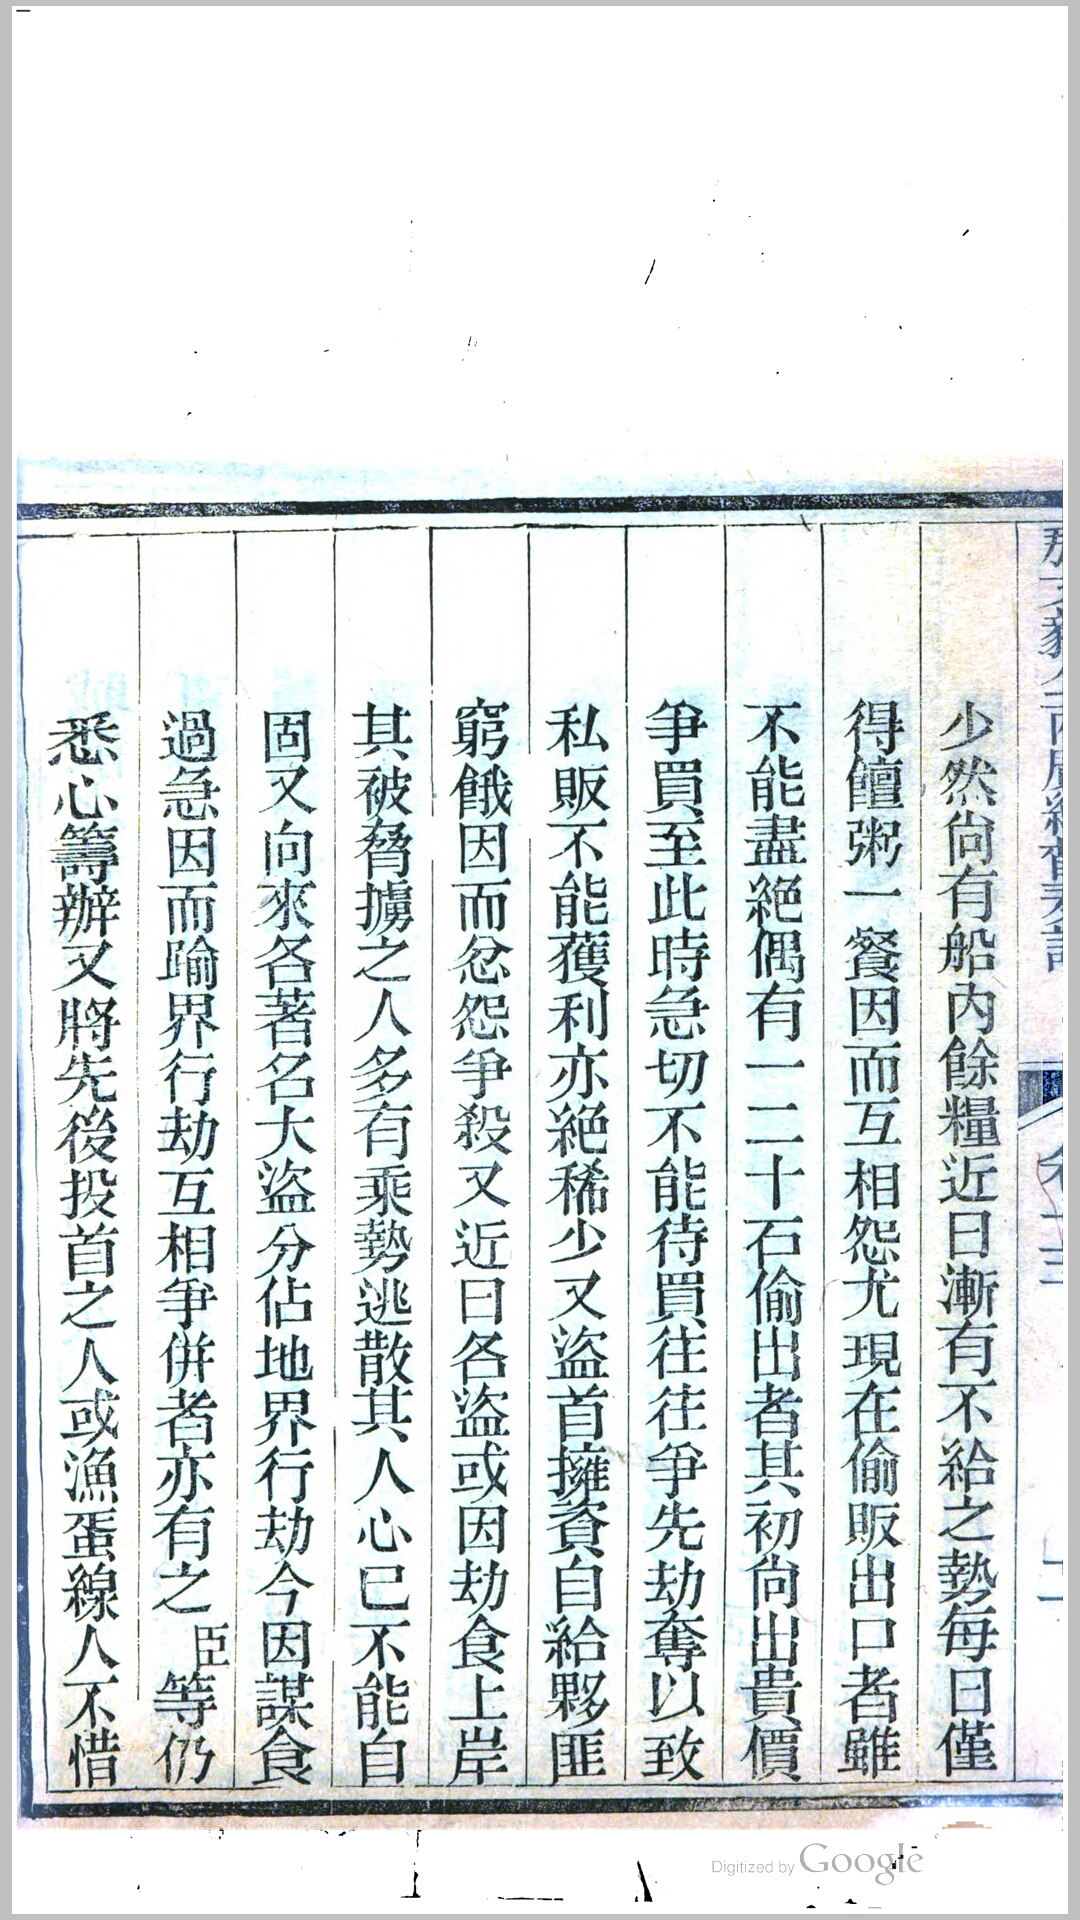 少然尚有船內餘糧近日漸有不給之勢每日僅
得饘粥一餐因而互相怨尤現在偷販出口者雖
不能盡絕偶有一二十石偷出者其初尚出貴價
爭買至此時急切不能待買往往爭先劫奪以致
私販不能獲利亦絕稀少又盜首擁資自給夥匪
窮餓因而忿怨爭殺又近日各盜或因劫食上岸
其被脅擄之人多有乘勢逃散其人心已不能自
固又向來各著名大盜分佔地界行劫今因謀食
過急因而踰界行劫互相爭併者亦有之臣等仍
悉心籌辦又將先後投首之人或漁蛋線人不惜
Digitized by Google